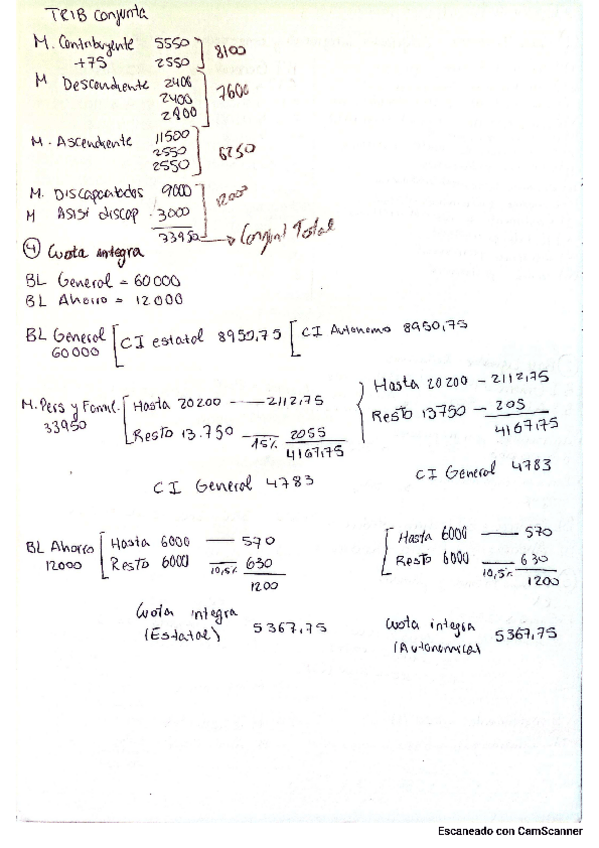 TRIB Conjunta
M. Contribuyente 5550
+75 2550 8100
M Descendiente 2400
2400
2800 7600
M. Ascendiente 11500
2550
2550 6250
M. Discapacitados 9000
M Asist discap 3000 12000
33950 → Conjunt Total
4 Cuota integra
BL General = 60000
BL Ahorro = 12000
BL General 60000 [ CI estatal 8950,75 [ CI Autonomo 8950,75
M. Pers y Famil. 33950
Hasta 20200 — 2112,75
Resto 13.750 — 15% 2055
4167,75
CI General 4783
Hasta 20200 - 2112,75
Resto 13750 - 205
4167,75
CI General 4783
BL Ahorro 12000
Hasta 6000 — 570
Resto 6000 10,5% 630
1200
Cuota integra (Estatal) 5367,75
Hasta 6000 — 570
Resto 6000 10,5% 630
1200
Cuota integra (Autonomica) 5367,75
Escaneado con CamScanner